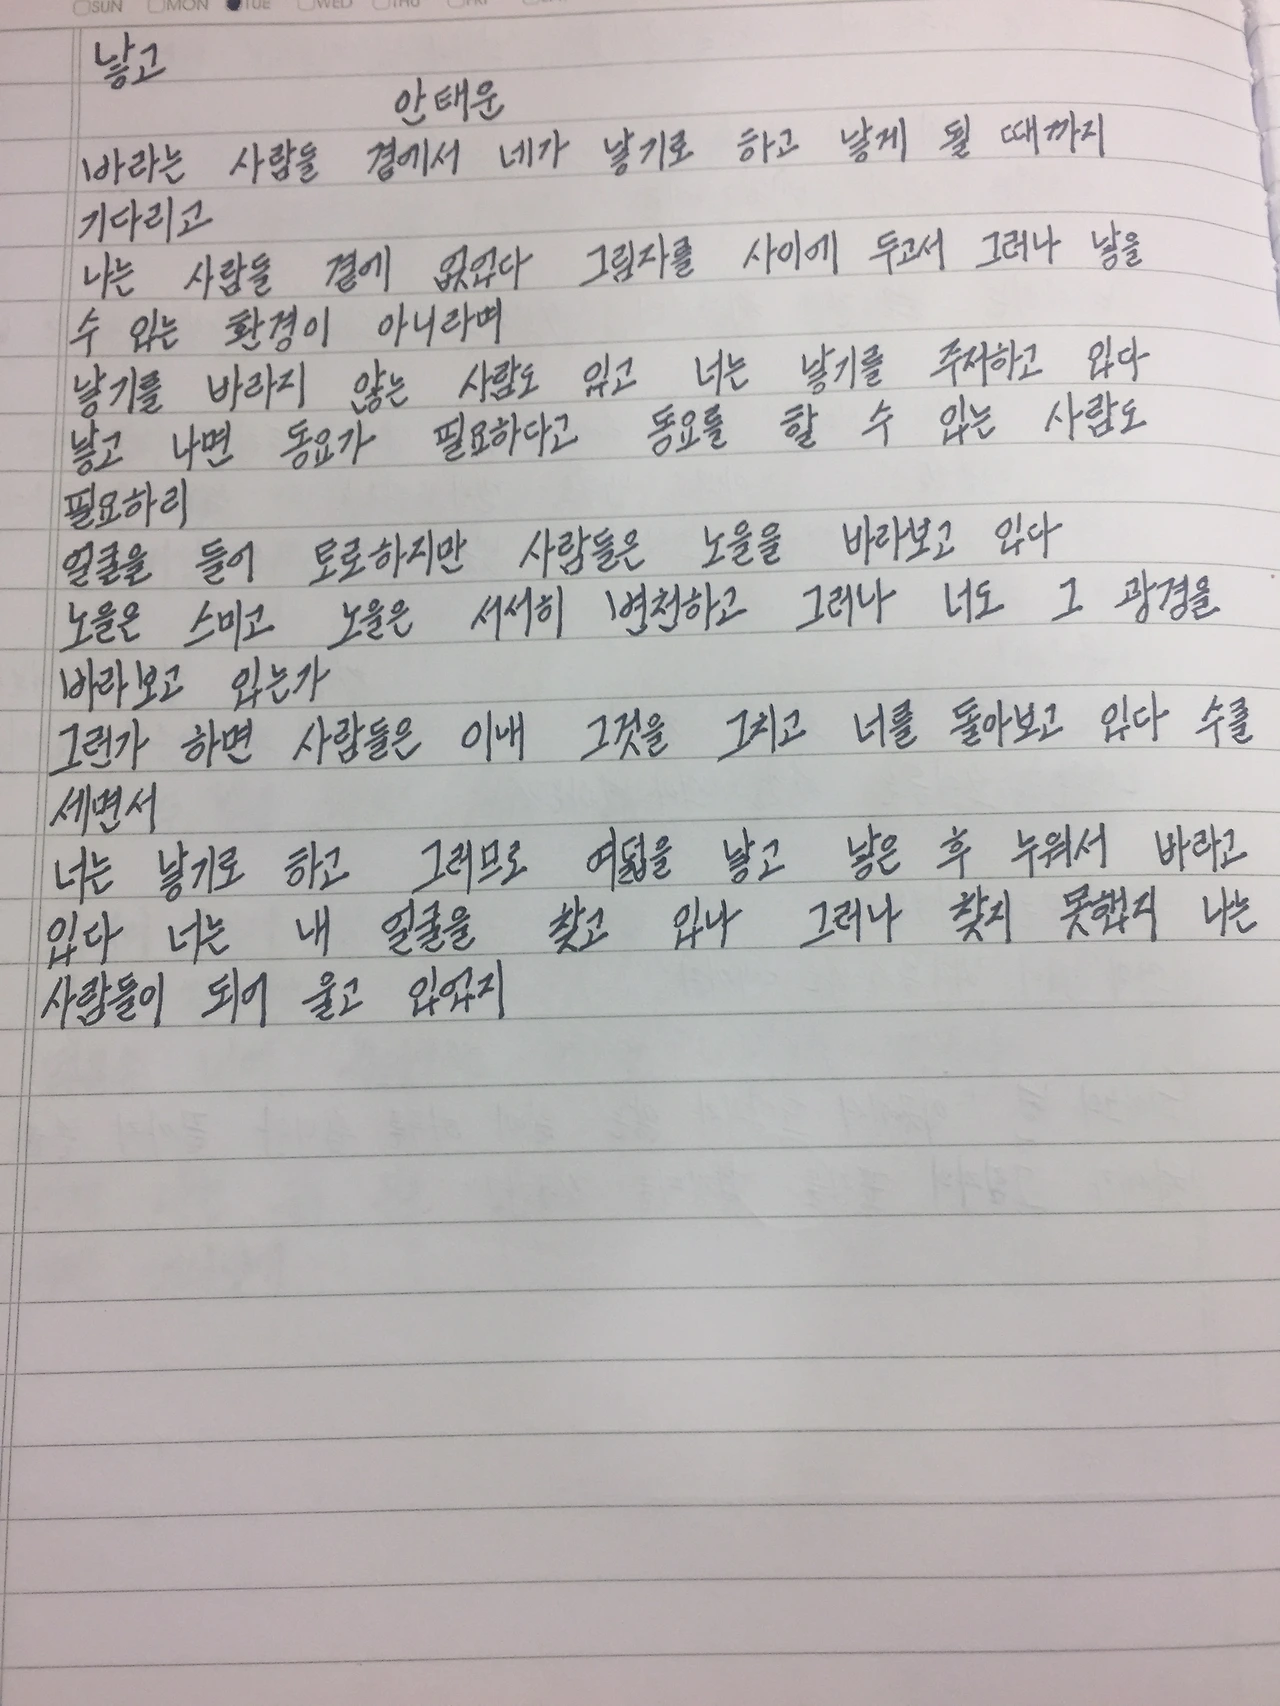 SUN MON TUE WED THU FRI
낳고
안태운
바라는 사람들 곁에서 네가 낳기로 하고 낳게 될 때까지
기다리고
나는 사람들 곁에 없었다 그림자를 사이에 두고서 그러나 낳을
수 있는 환경이 아니라며
낳기를 바라지 않는 사람도 있고 너는 낳기를 주저하고 있다
낳고 나면 동요가 필요하다고 동요를 할 수 있는 사람도
필요하리
얼굴을 들어 토로하지만 사람들은 노을을 바라보고 있다
노을은 스미고 노을은 서서히 변천하고 그러나 너도 그 광경을
바라보고 있는가
그런가 하면 사람들은 이내 그것을 그치고 너를 돌아보고 있다 수를
세면서
너는 낳기로 하고 그러므로 여덟을 낳고 낳은 후 누워서 바라고
있다 너는 내 얼굴을 찾고 있나 그러나 찾지 못했지 나는
사람들이 되어 울고 있었지